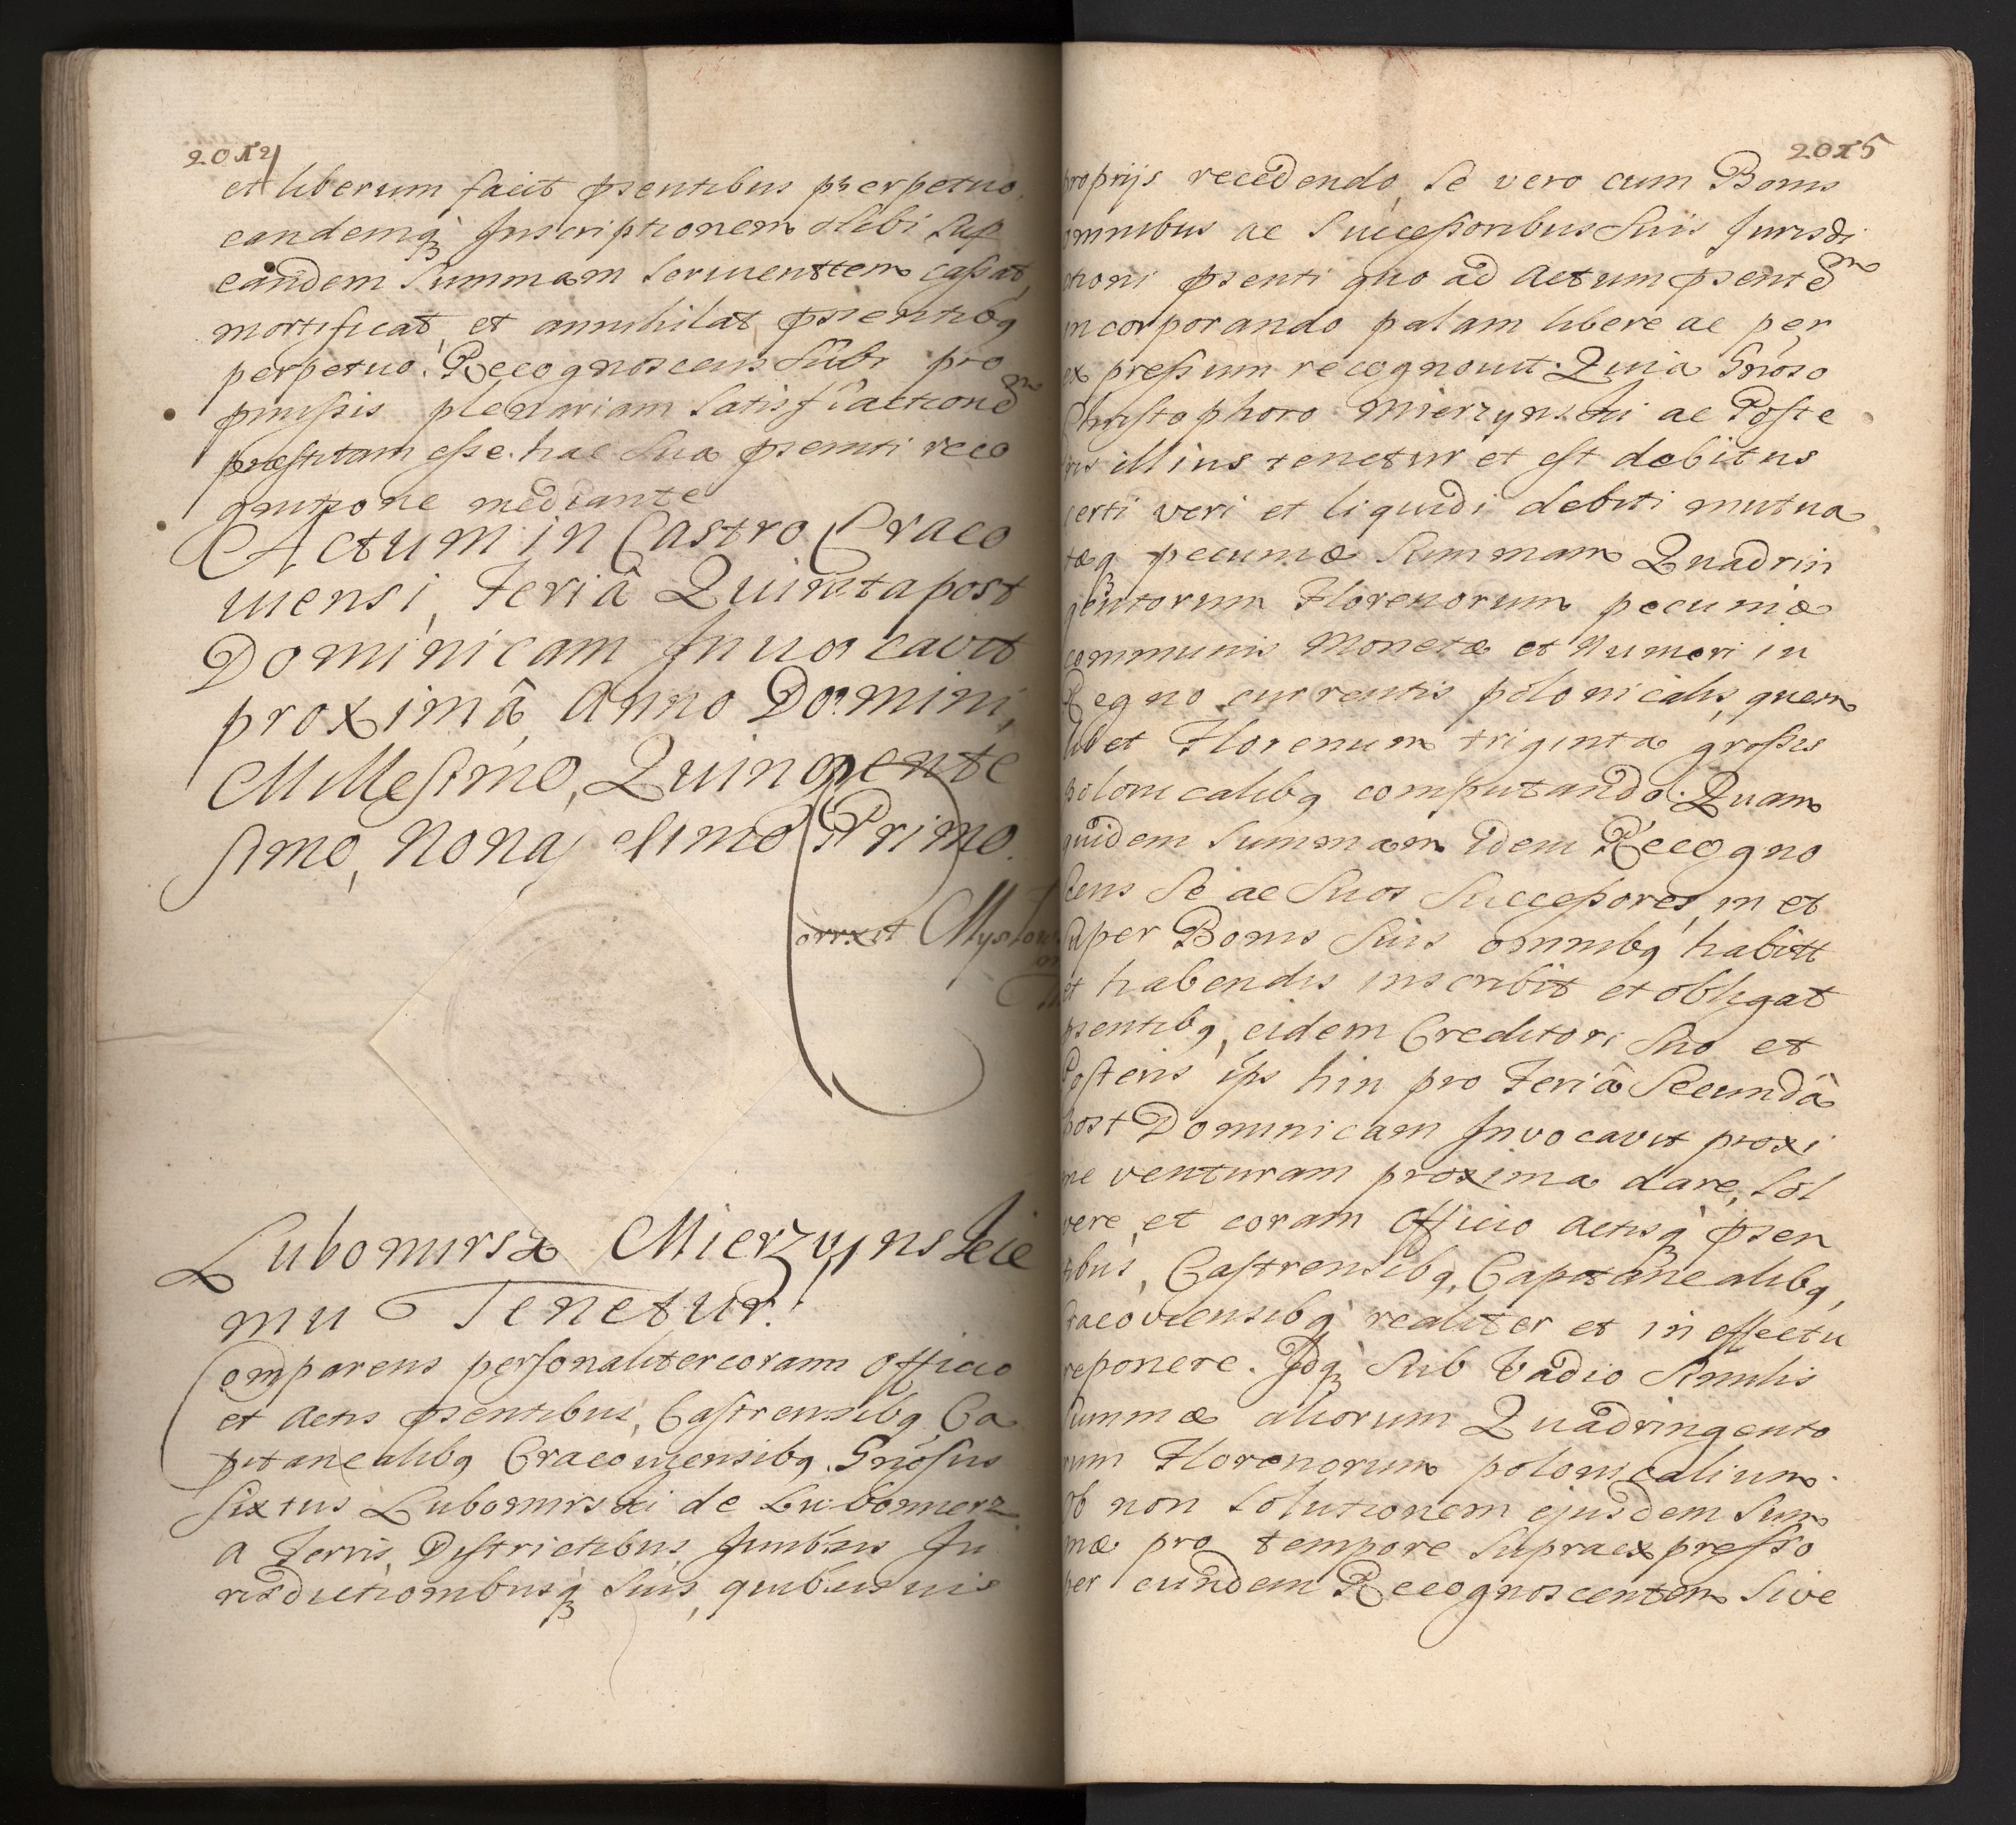 2014
et liberum facit psentibus perpetuo,
eandemq Inscriptionem sibi Sup
eandem Summam Servientem cassat,
mortificat, et annihilat psentibq
perpetuo. Recognoscens Sibi pro
pmissis plenariam Satisfactionem
præstitam esse hac Sua psenti reco
gnitione mediante
Actum in Castro Craco
uiensi, Feriâ Quinta post
Dominicam Inuocavit
proximâ, Anno Domini,
Millesimo, Quingente
simo, Nonagesimo Primo.
Correxit
Lubomirski Mierzynskie
mu Tenetur.
Comparens personaliter coram Officio
et Actis psentibus, Castrensibq Ca
pitanealibq Cracouiensibq, Gnosus
Sixtus Lubomirski de Lubomierz
a Terris, Districtibus, Juribus Ju
risdictionibusq Suis, quibusuis
2015
proprijs recedendo, Se vero cum Bonis
omnibus ac Successoribus Suis Jurisdi
ctioni psenti quo ad Actum psentem
incorporando palam libere ac per
expressum recognouit. Quia Gnoso
Christophoro Mierzynski ac Poste
ris illius tenetur et est debitus
certi veri et liquidi debiti mutua
tæq pecuniæ Summam Quadrin
gentorum Florenorum pecuniæ
communis Monetæ et Numeri in
Regno currentis polonicalis, quem
libet Florenum triginta grossis
polonicalibq computando. Quam
quidem Summam Idem Recogno
scens Se ac Suos Successores, in et
Super Bonis Suis omnibq habitt
et habendis inscribit et obligat
psentibq, eidem Creditori Suo et
Posteris ips hin pro Feriâ Secundâ
post Dominicam Invocavit proxi
me venturam proxima dare, Sol
vere, et coram Officio Actisq psen
tibus, Castrensibq, Capitanealibq,
Cracoviensibq realiter et in effectu
reponere. Idq Sub Vadio Similis
Summæ aliorum Quadringento
rum Florenorum polonicalium.
Ob non Solutionem ejusdem Sum
mæ pro tempore Supraexpresso
per eundem Recognoscentem Sive